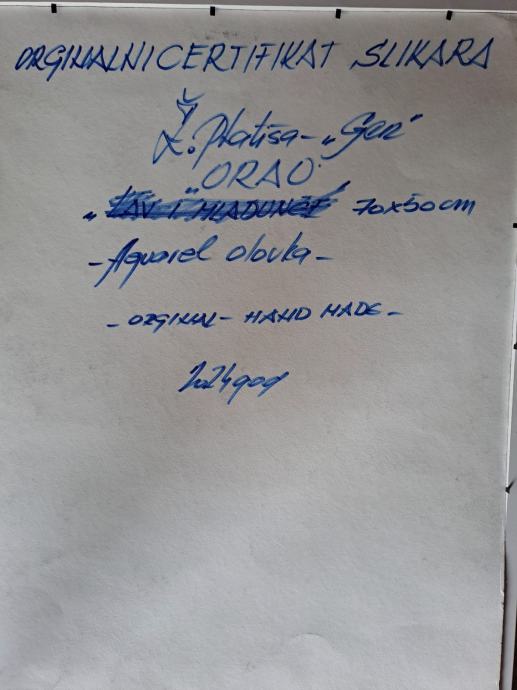 ORGINALNI CERTIFIKAT SLIKARA
Ž. Platiša - „Ger"
„ORAO"
„LAV I MLADUNČE" 70x50cm
- Aquarel olovka -
- ORGINAL - HAND MADE -
2024 god